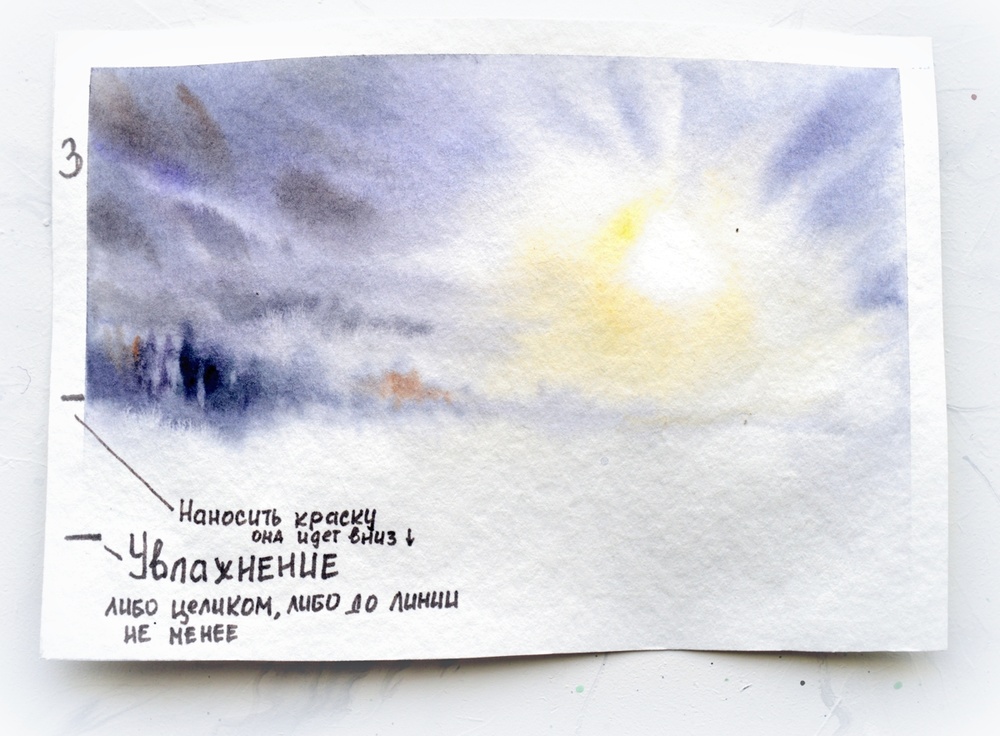 3
Наносить краску
она идет вниз ↓
Увлажнение
либо целиком, либо до линии
не менее